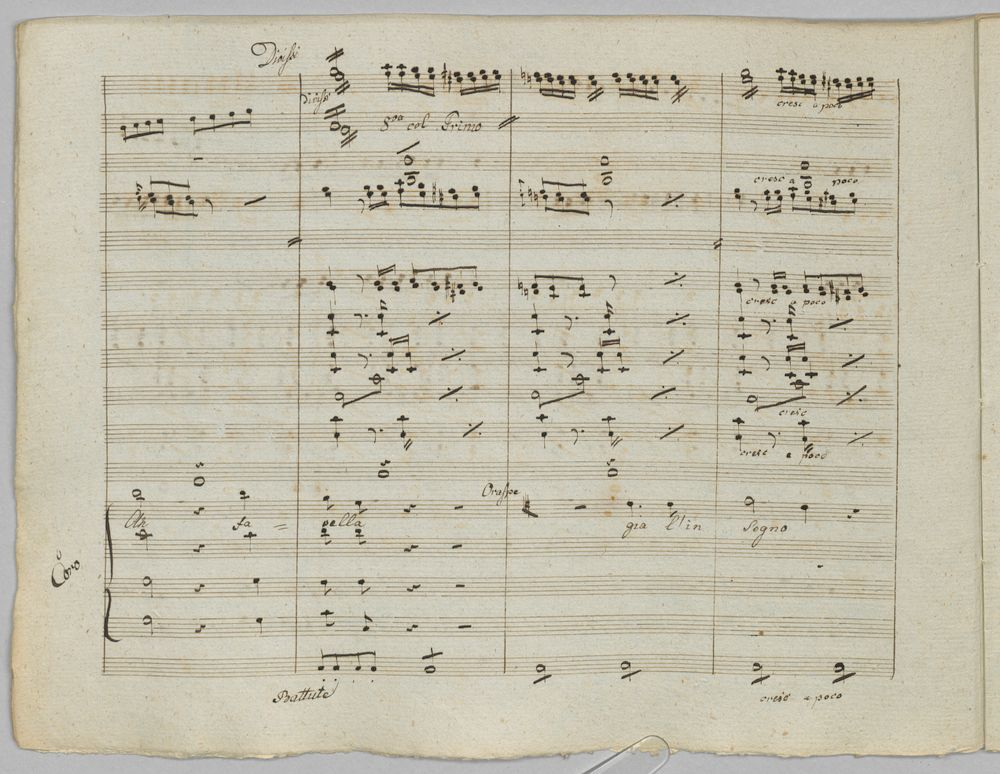 Divisi
Divisi
8va col Primo
cresc a poco
cresc a poco
cresc a poco
cresc
cresc a poco
Oraspe
Ah fa = vella già l'in segno
Coro
Battute
cresc a poco